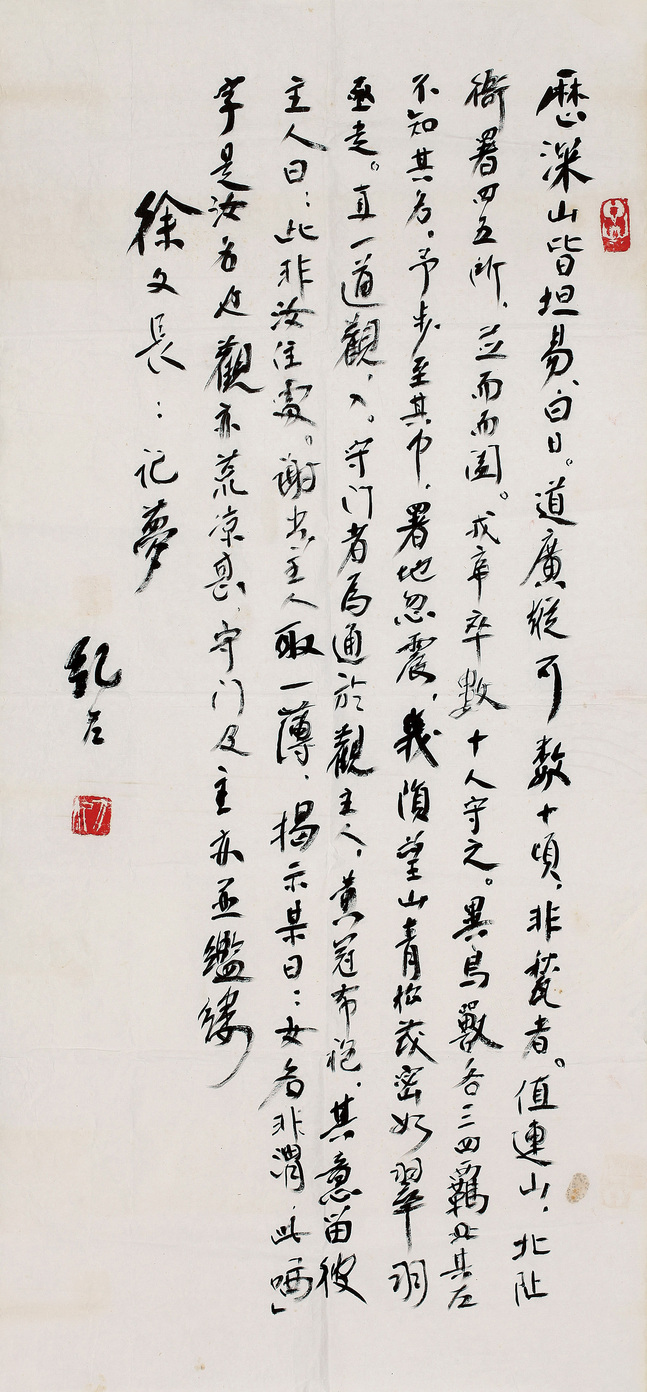 歷深山皆坦易、白日。道廣縱可數十頃，非甃者。值連山，北阯
衙署四五所，並而圍。戎卒數十人守之。異鳥獸各三四羈其左
不知其名。予步至其中，署地忽震，幾隕望山青松茂密如翠羽
亟走。直一道觀，入。守门者為通於觀主人，黃冠布袍，其意留彼
主人曰：此非汝住處。謝出主人取一簿，揭示某曰：女名非渭，此哂
字是汝名也觀亦荒涼甚，守门及主亦並藍縷
徐文長：記夢